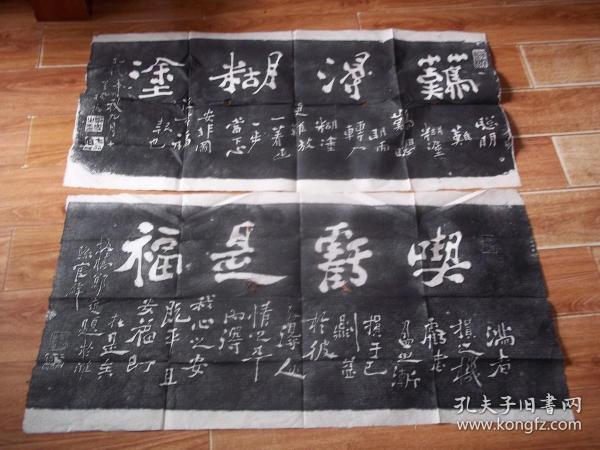 難得糊塗
聰明
難
糊塗
難
明而
轉入
糊塗
更難放
一著退
一步
當下心
安非圖
報也
喫虧是福
滿者
損之機
虧者
盈之漸
損于己
則益
於彼
外得人
情之平
內得
我心之安
既平且
安福即
在是矣
板橋鄭燮題於濰
縣官署
孔夫子旧书网
www.kongfz.com